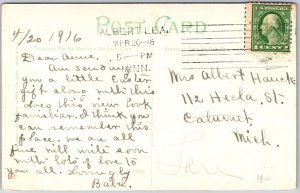 POST CARD
ALBERT LEA,
APR 20-16
5-PM
MINN.
U.S. POSTAGE
1 CENT 1
4/20 1916
Dear Anna,
Am sending
you a little Easter
gift along with this
does this view look
familiar. I think you
can remember this
place. We are all
fine will write soon
with lots of love to
you all. Lovingly
Babe.
Mrs Albert Hauck
112 Hecla, St.
Calumet,
Mich.